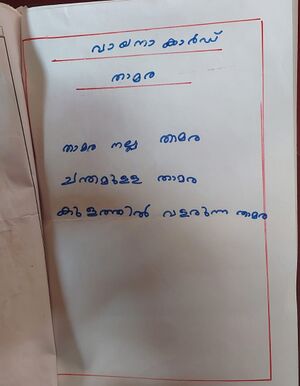 വായനാ കാർഡ്
താമര
താമര നല്ല താമര
ചന്തമുള്ള താമര
കുളത്തിൽ വളരുന്ന താമര